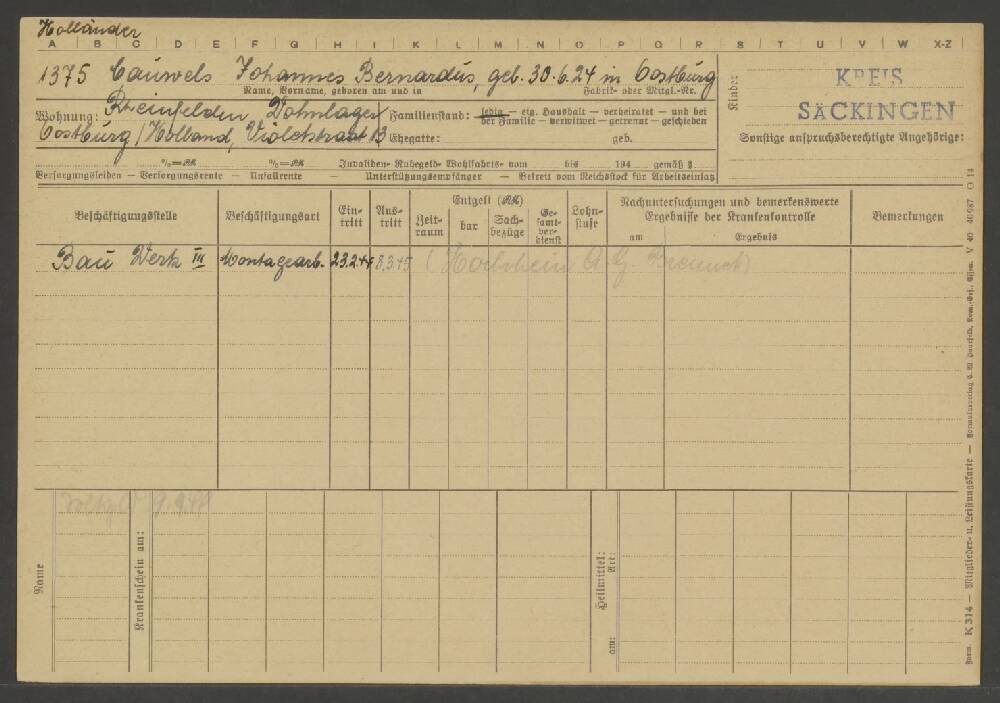 Holländer
A B C D E F G H I K L M N O P Q R S T U V W X-Z
1375 Cauwels Johannes Bernardus, geb. 30.6.24 in Oostburg
Name, Vorname, geboren am und in Fabrik- oder Mitgl.-Nr.
Wohnung: Rheinfelden Wohnlager
Oostburg/Holland, Violetstraat 13
Familienstand: ledig — eig. Haushalt — verheiratet — und bei
der Familie — verwitwet — getrennt — geschieden
Ehegatte: geb.
Kinder
KREIS
SÄCKINGEN
Sonstige anspruchsberechtigte Angehörige:
%=RM %=RM Invaliden- Ruhegeld- Wohlfahrts- vom bis 194 gemäß §
Versorgungsleiden — Versorgungsrente — Unfallrente — Unterstützungsempfänger — Betreut vom Reichsstock für Arbeitseinsatz
Beschäftigungsstelle
Beschäftigungsart
Ein-
tritt
Aus-
tritt
Entgelt (RM)
Zeit-
raum
bar
Sach-
bezüge
Ge-
samt-
ver-
dienst
Lohn-
stufe
Nachuntersuchungen und bemerkenswerte
Ergebnisse der Krankenkontrolle
am Ergebnis
Bemerkungen
Bau Werk III Montagearb. 23.2.44 8.3.45 A.G. Brennet)
9.9.44
Name
Krankenschein am:
Heilmittel:
Art:
am:
Form. K 314 — Mitglieder- u. Leistungskarte —